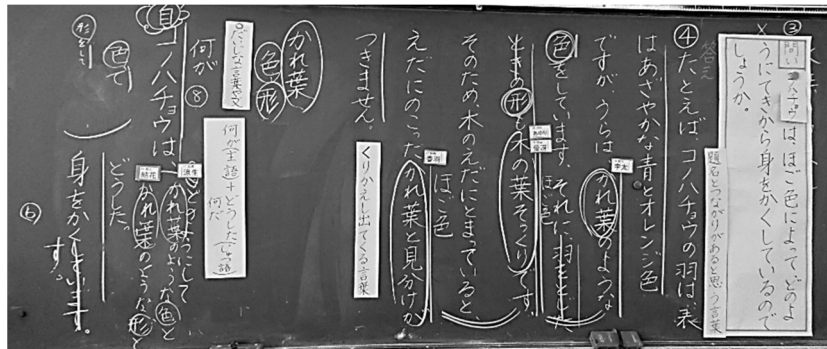 ③
問い
コノハチョウは、ほご色によって、どのよ
うにてきから身をかくしているので
しょうか。
題名とつながりがあると思う言葉
答え
④たとえば、コノハチョウの羽は、表
はあざやかな青とオレンジ色
ですが、うらは、かれ葉のような
色をしています。それに、羽をとじた
ほご色
ときの形も木の葉そっくりです。
そのため、木のえだにとまっていると、
ほご色
えだにのこったかれ葉と見分けが
つきません。
くりかえし出てくる言葉
かれ葉
色 形
だいじな言葉や文
何が
⑧
何が(主語)+どうした(じゅつ語)
何だ
コノハチョウは、
どのようにして
かれ葉のような色と
かれ葉のような形と
色で
形をして
どうした。
身をかくしています。
⑥